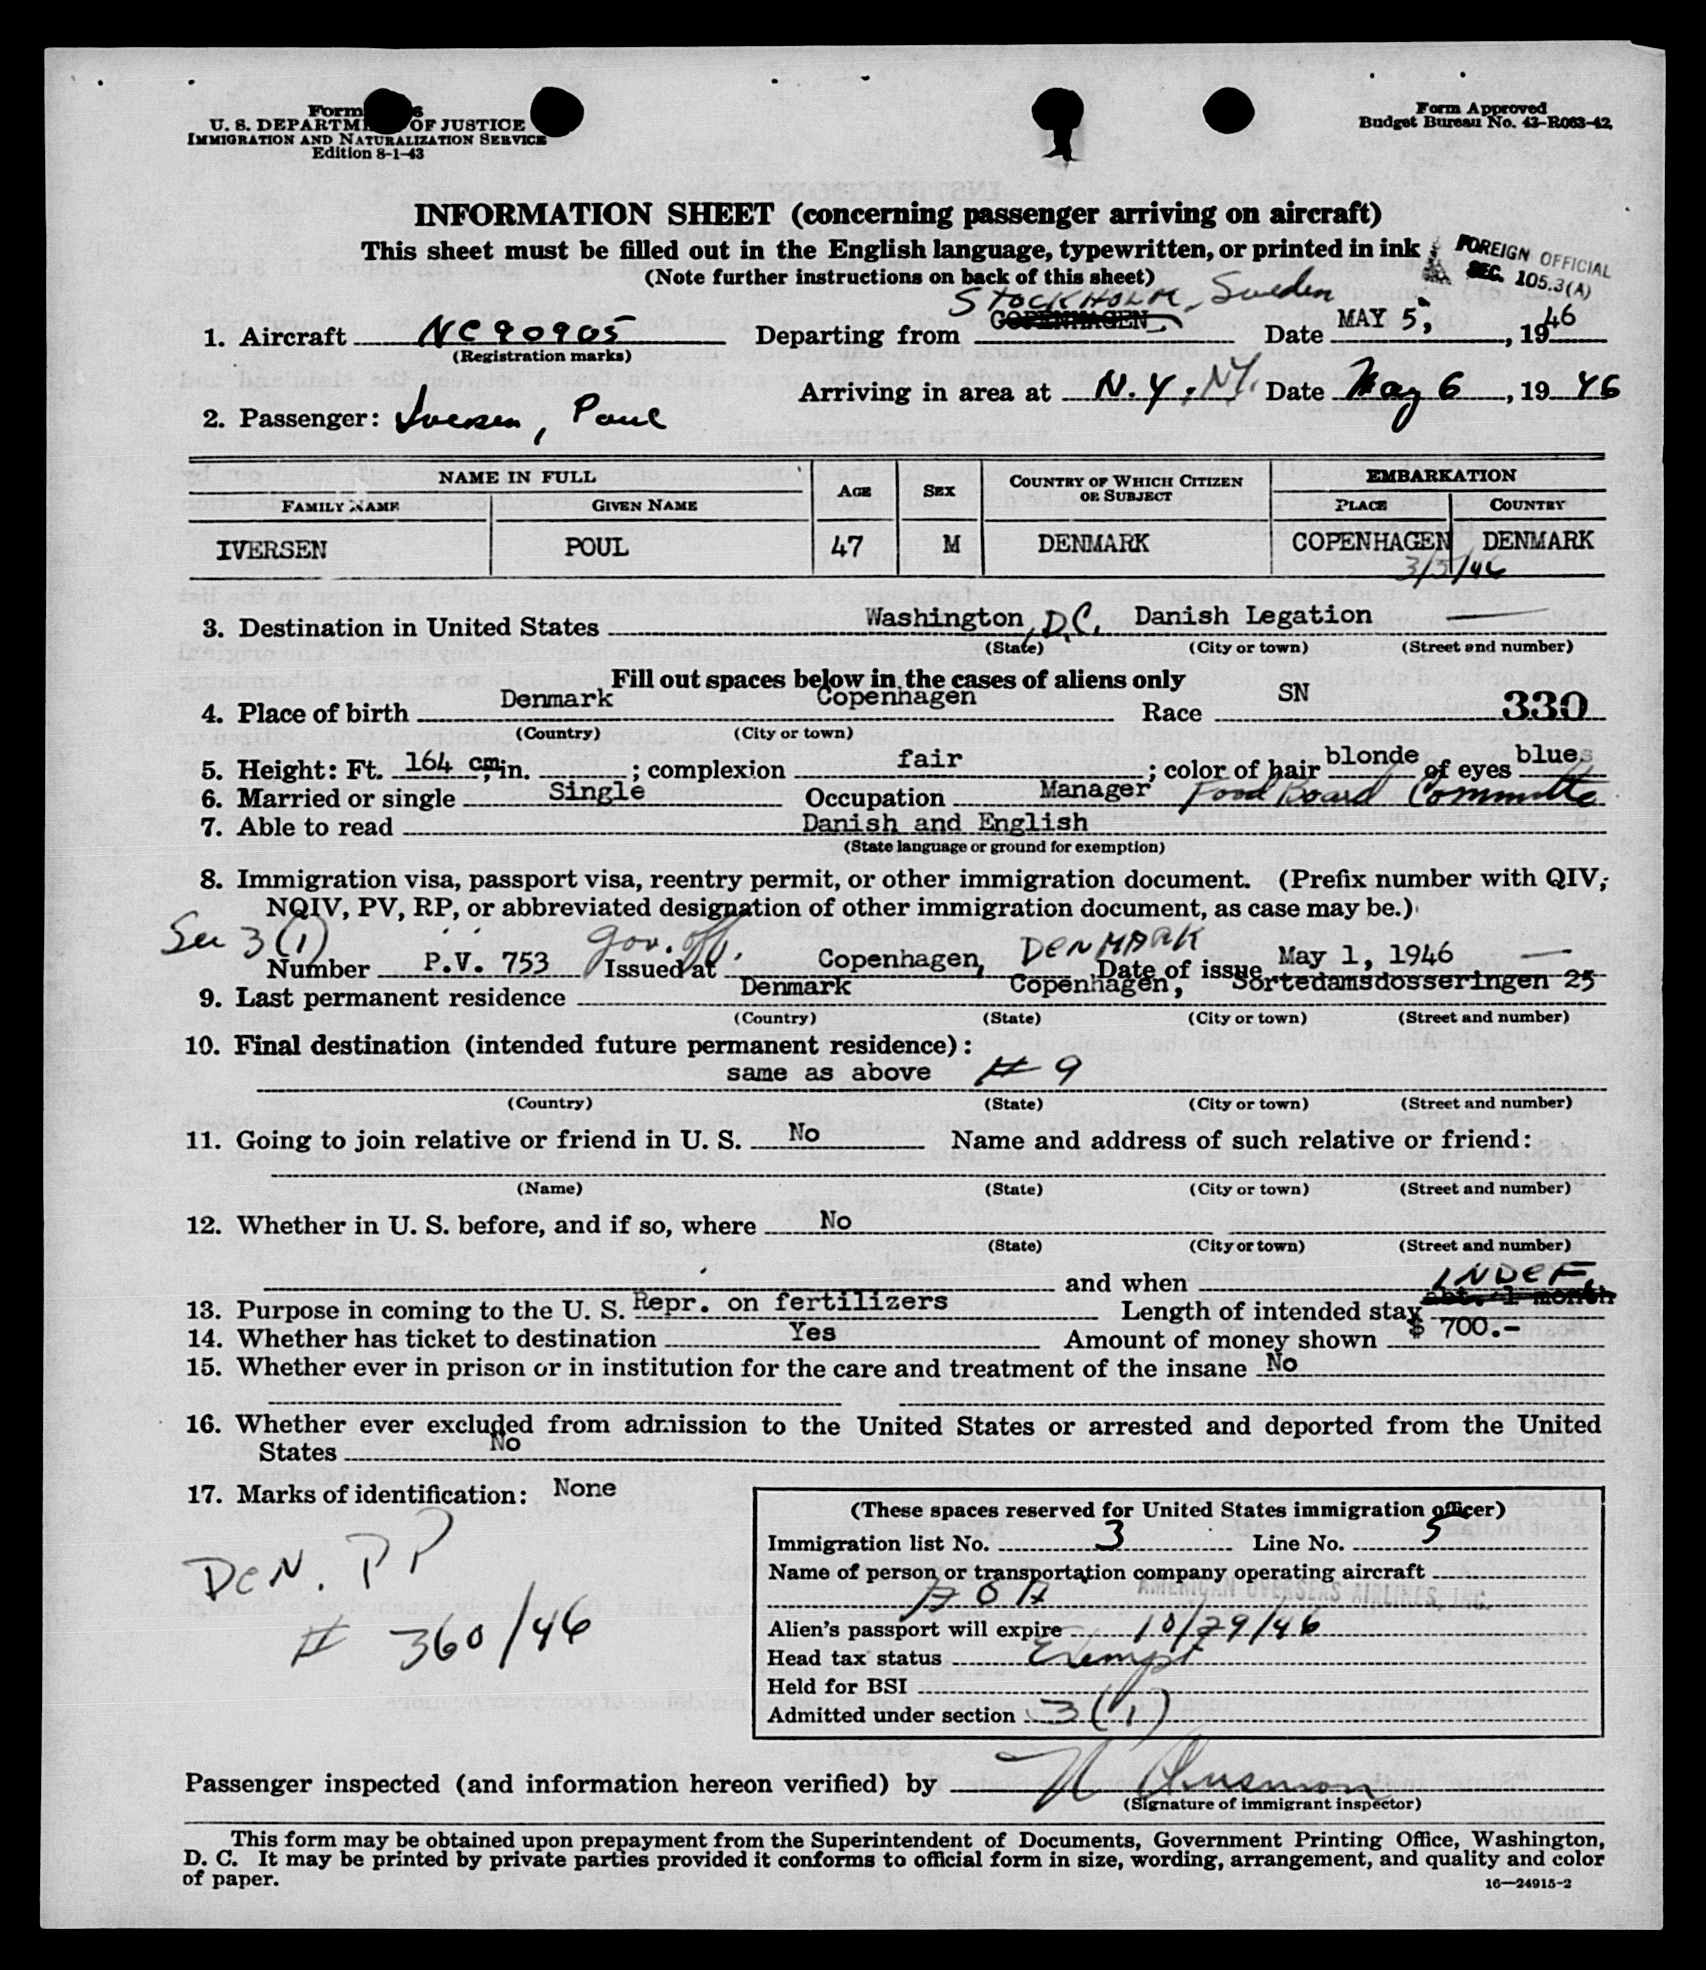 Form
U. S. DEPARTM OF JUSTICE
IMMIGRATION AND NATURALIZATION SERVICE
Edition 8-1-43
Form Approved
Budget Bureau No. 43-R063-42
INFORMATION SHEET (concerning passenger arriving on aircraft)
This sheet must be filled out in the English language, typewritten, or printed in ink
(Note further instructions on back of this sheet)
FOREIGN OFFICIAL
SEC. 105.3(A)
STOCKHOLM, Sweden
1. Aircraft NC90905 Departing from COPENHAGEN Date MAY 5, 1946
(Registration marks)
Arriving in area at N.Y., NY. Date May 6, 1946
2. Passenger: Iversen, Poul
NAME IN FULL AGE SEX COUNTRY OF WHICH CITIZEN OR SUBJECT EMBARKATION
FAMILY NAME GIVEN NAME PLACE COUNTRY
IVERSEN POUL 47 M DENMARK COPENHAGEN DENMARK
3/5/46
3. Destination in United States Washington, D.C. Danish Legation —
(State) (City or town) (Street and number)
Fill out spaces below in the cases of aliens only
4. Place of birth Denmark Copenhagen Race SN 330
(Country) (City or town)
5. Height: Ft. 164 cm, in. ; complexion fair ; color of hair blonde of eyes blues
6. Married or single Single Occupation Manager Food Board Committe
7. Able to read Danish and English
(State language or ground for exemption)
8. Immigration visa, passport visa, reentry permit, or other immigration document. (Prefix number with QIV,
NQIV, PV, RP, or abbreviated designation of other immigration document, as case may be.)
Sec 3(1) gov. off. DENMARK
Number P.V. 753 Issued at Copenhagen, Date of issue May 1, 1946 —
9. Last permanent residence Denmark Copenhagen, Sortedamsdosseringen 25
(Country) (State) (City or town) (Street and number)
10. Final destination (intended future permanent residence):
same as above # 9
(Country) (State) (City or town) (Street and number)
11. Going to join relative or friend in U. S. No Name and address of such relative or friend:
(Name) (State) (City or town) (Street and number)
12. Whether in U. S. before, and if so, where No
(State) (City or town) (Street and number)
and when
INDEF.
13. Purpose in coming to the U. S. Repr. on fertilizers Length of intended stay abt. 1 month
14. Whether has ticket to destination Yes Amount of money shown $ 700.-
15. Whether ever in prison or in institution for the care and treatment of the insane No
16. Whether ever excluded from admission to the United States or arrested and deported from the United
States No
17. Marks of identification: None
DEN. PP
# 360/46
(These spaces reserved for United States immigration officer)
Immigration list No. 3 Line No. 5
Name of person or transportation company operating aircraft
AOA AMERICAN OVERSEAS AIRLINES, INC.
Alien's passport will expire 10/29/46
Head tax status Exempt
Held for BSI
Admitted under section 3(1)
Passenger inspected (and information hereon verified) by
(Signature of immigrant inspector)
This form may be obtained upon prepayment from the Superintendent of Documents, Government Printing Office, Washington,
D. C. It may be printed by private parties provided it conforms to official form in size, wording, arrangement, and quality and color
of paper.
16—24915-2